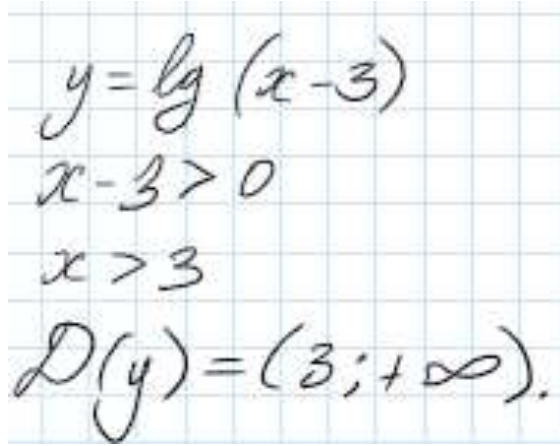 y = lg (x-3)
x-3 > 0
x > 3
D(y) = (3; +∞).